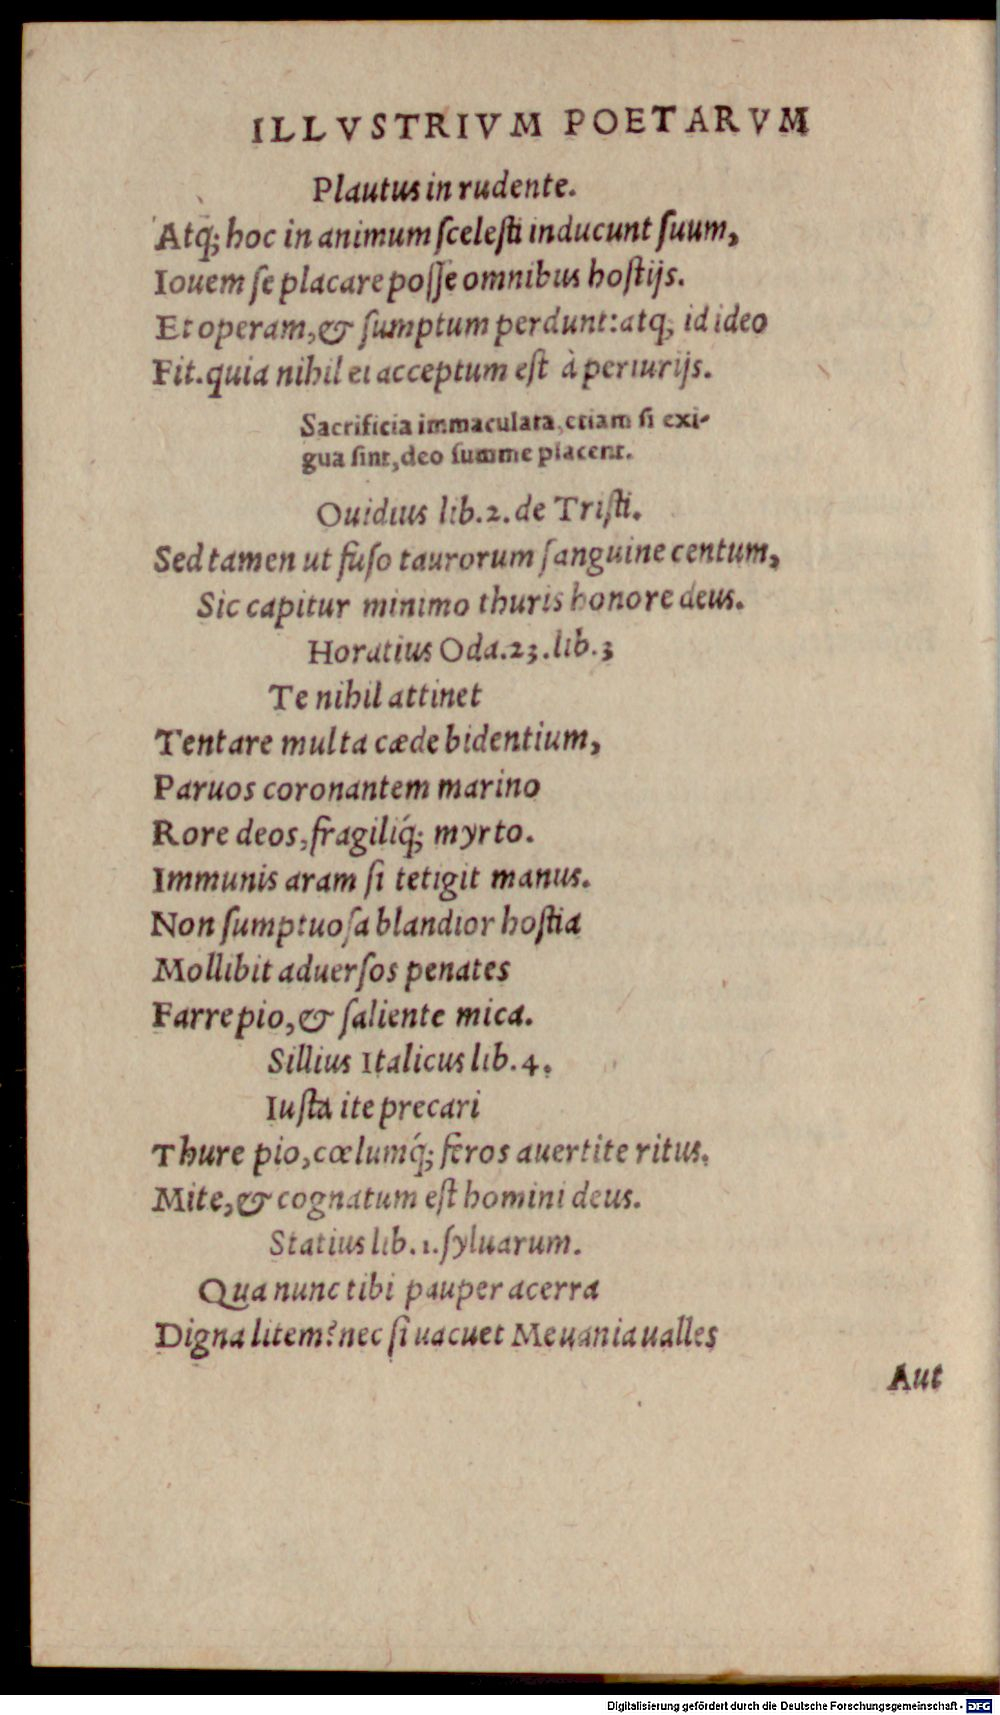 ILLVSTRIVM POETARVM
Plautus in rudente.
Atq; hoc in animum ſceleſti inducunt ſuum,
Iouem ſe placare poſſe omnibus hoſtijs.
Et operam, & ſumptum perdunt: atq; id ideo
Fit. quia nihil ei acceptum eſt à periurijs.
Sacrificia immaculata, etiam ſi exi-
gua ſint, deo ſumme placent.
Ouidius lib. 2. de Triſti.
Sed tamen ut fuſo taurorum ſanguine centum,
Sic capitur minimo thuris honore deus.
Horatius Oda. 23. lib. 3
Te nihil attinet
Tentare multa cæde bidentium,
Paruos coronantem marino
Rore deos, fragiliq́; myrto.
Immunis aram ſi tetigit manus.
Non ſumptuoſa blandior hoſtia
Mollibit aduerſos penates
Farre pio, & ſaliente mica.
Sillius Italicus lib. 4.
Iuſta ite precari
Thure pio, cœlumq́; feros auertite ritus.
Mite, & cognatum eſt homini deus.
Statius lib. 1. ſyluarum.
Qua nunc tibi pauper acerra
Digna litem? nec ſi uacuet Meuania ualles
Aut
Digitalisierung gefördert durch die Deutsche Forschungsgemeinschaft - DFG